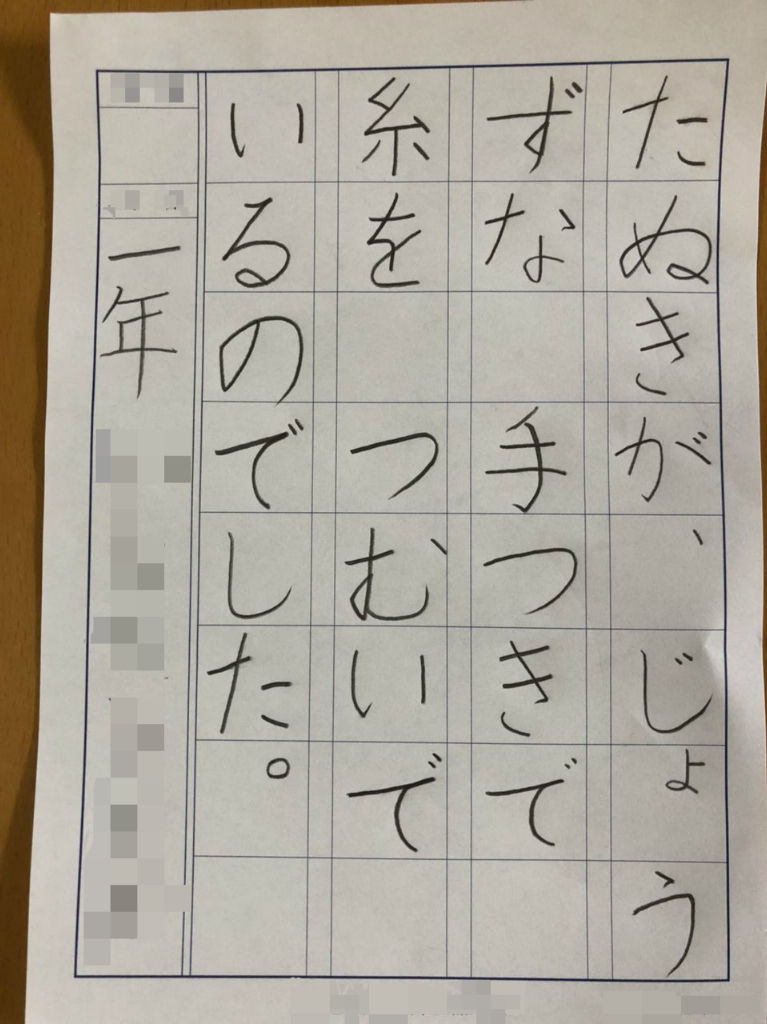 たぬきが、じょう
ずな　手つきで
糸を　つむいで
いるのでした。
一年